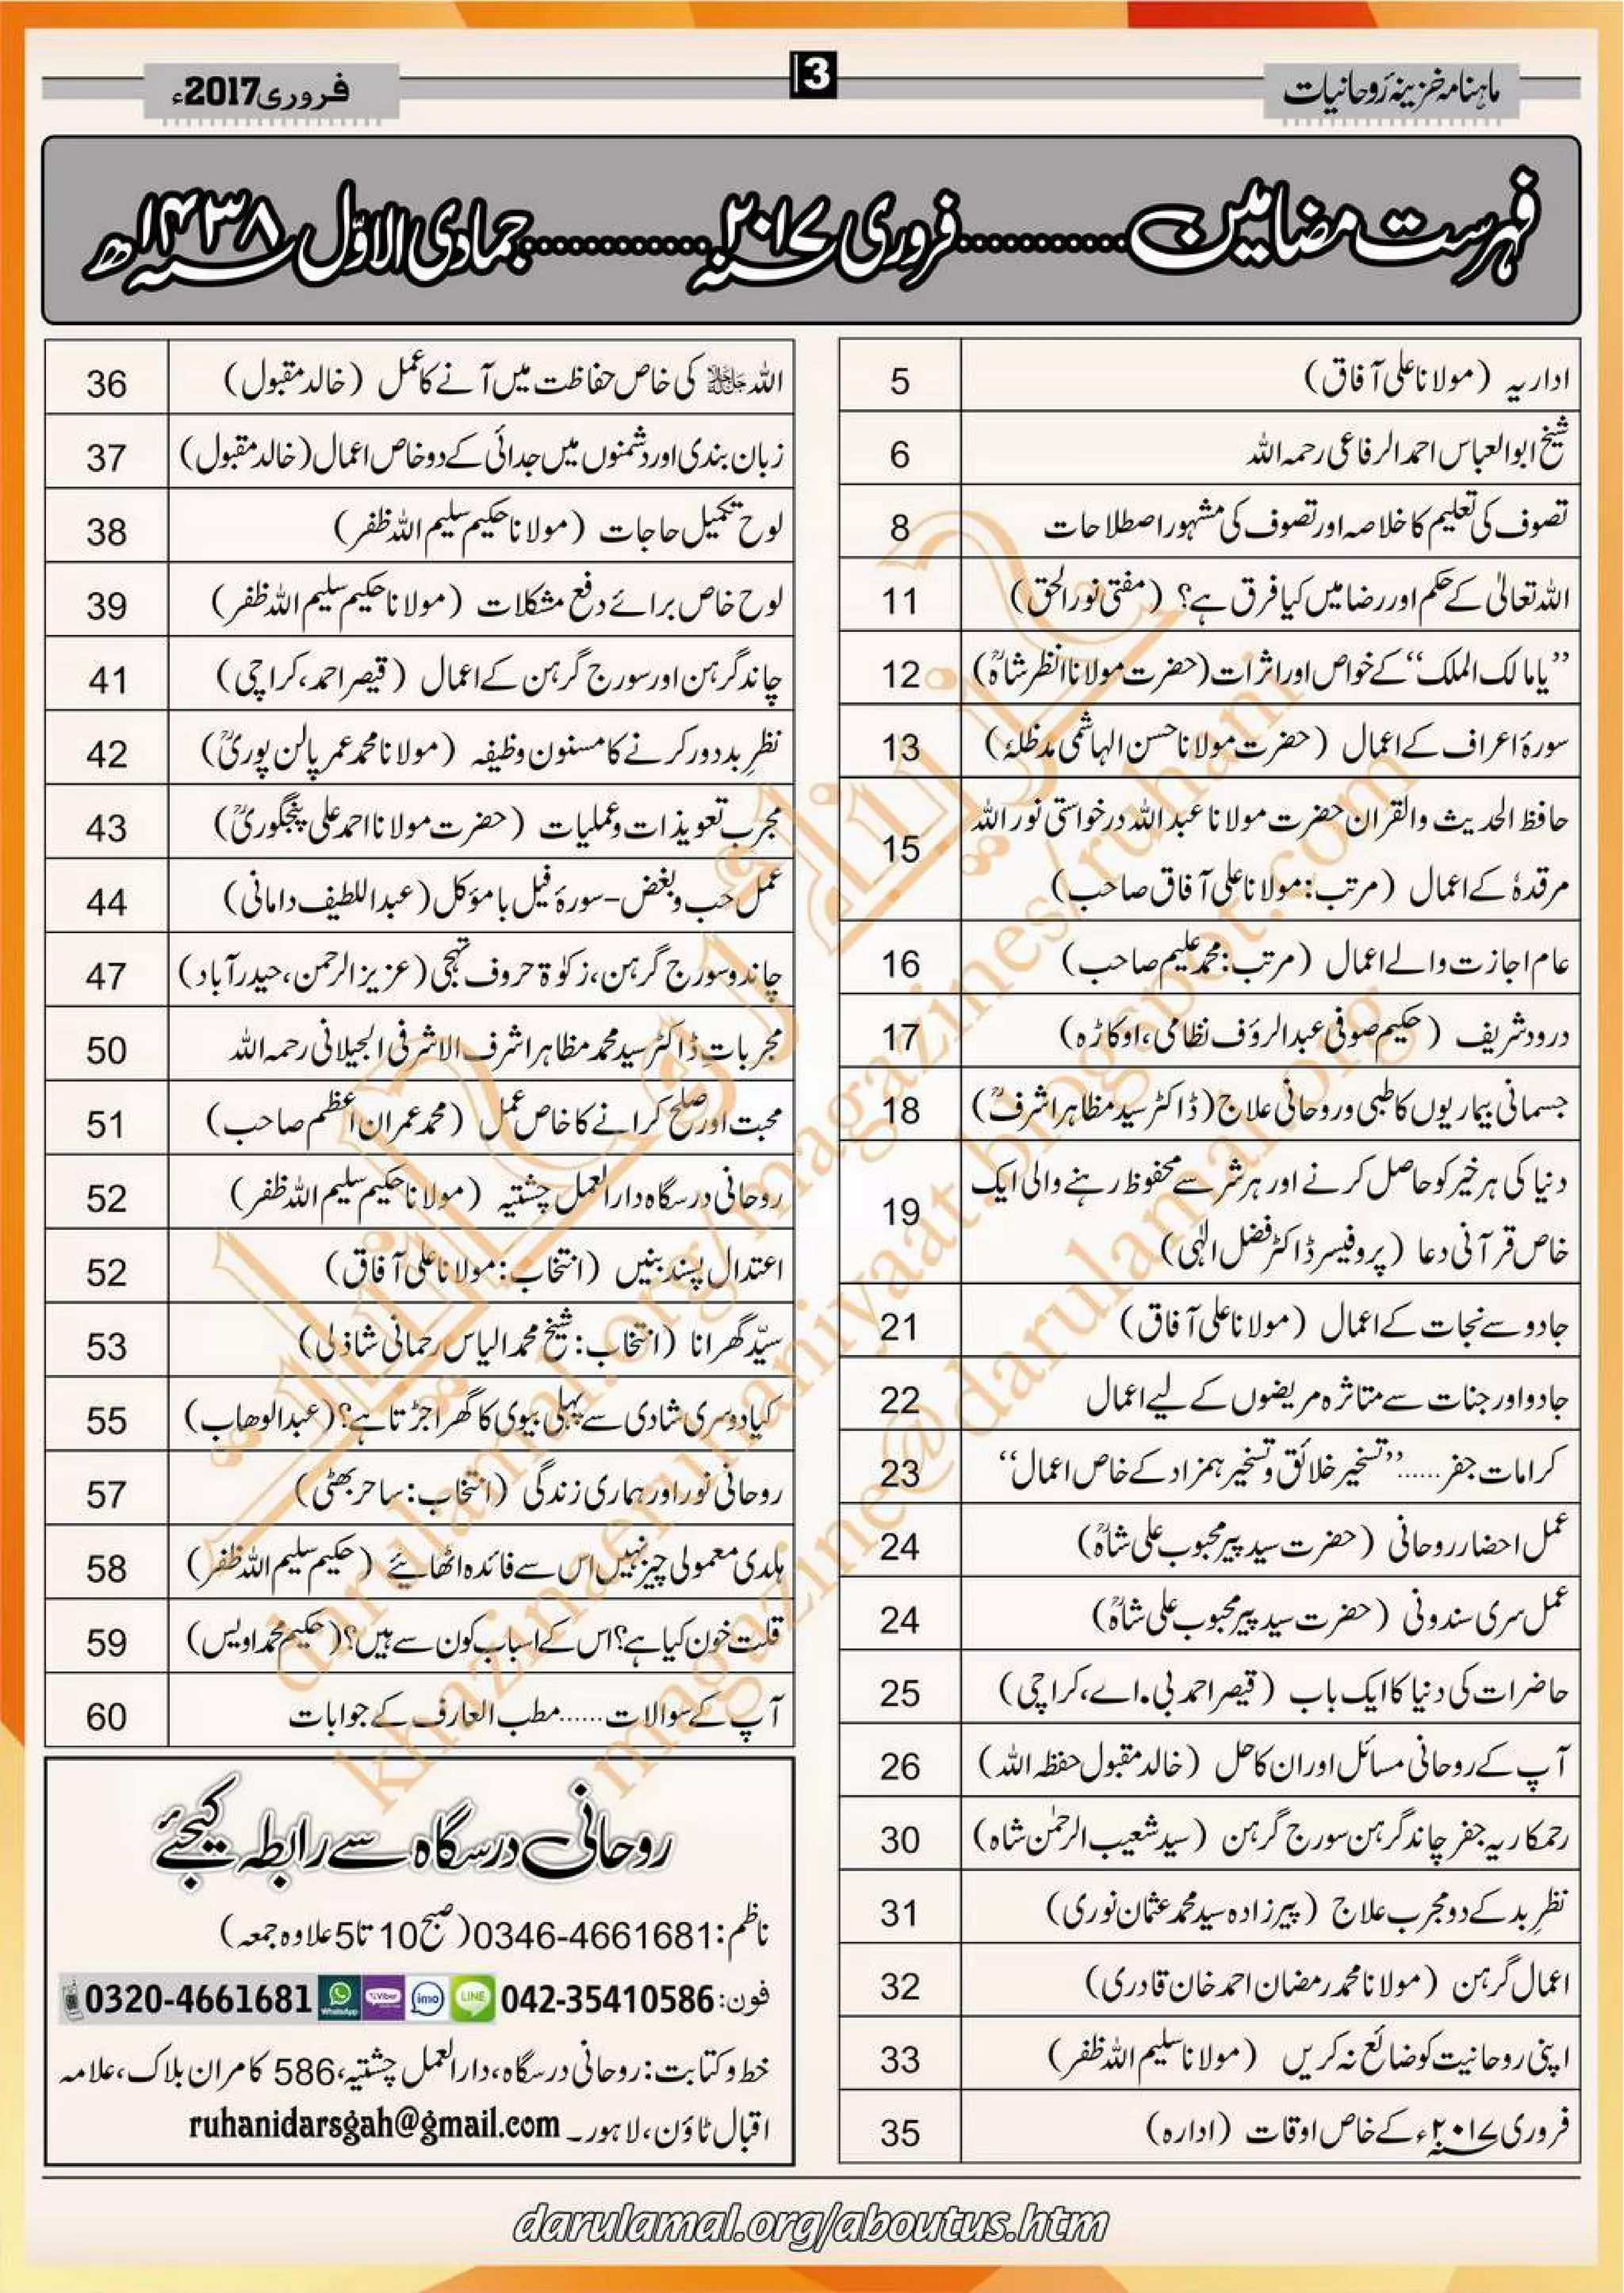 ماہنامہ خزینۂ روحانیات
3
فروری2017ء
فہرست مضامین............فروری ۲۰۱۷سنہ............جمادی الاوّل ۱۴۳۸سنہ ھ
اداریہ (مولانا علی آفاق) 5
شیخ ابوالعباس احمد الرفاعی رحمہ اللہ 6
تصوف کی تعلیم کا خلاصہ اور تصوف کی مشہور اصطلاحات 8
اللہ تعالیٰ کے حکم اور رضا میں کیا فرق ہے؟ (مفتی نور الحق) 11
’’یا مالک الملک‘‘ کے خواص اور اثرات (حضرت مولانا انظر شاہؒ) 12
سورۂ اعراف کے اعمال (حضرت مولانا حسن الہاشمی مدظلہٗ) 13
حافظ الحدیث والقران حضرت مولانا عبد اللہ درخواستی نور اللہ
مرقدہٗ کے اعمال (مرتب: مولانا علی آفاق صاحب) 15
عام اجازت والے اعمال (مرتب: محمد علیم صاحب) 16
درود شریف (حکیم صوفی عبد الرؤف نظامی، اوکاڑہ) 17
جسمانی بیماریوں کا طبی و روحانی علاج (ڈاکٹر سید مظاہر اشرفؒ) 18
دنیا کی ہر خیر کو حاصل کرنے اور ہر شر سے محفوظ رہنے والی ایک
خاص قرآنی دعا (پروفیسر ڈاکٹر فضل الٰہی) 19
جادو سے نجات کے اعمال (مولانا علی آفاق) 21
جادو اور جنات سے متاثرہ مریضوں کے لیے اعمال 22
کرامات جفر......’’تسخیر خلائق و تسخیر ہمزاد کے خاص اعمال‘‘ 23
عمل احضار روحانی (حضرت سید پیر محبوب علی شاہؒ) 24
عمل سری سندونی (حضرت سید پیر محبوب علی شاہؒ) 24
حاضرات کی دنیا کا ایک باب (قیصر احمد بی.اے، کراچی) 25
آپ کے روحانی مسائل اور ان کا حل (خالد مقبول حفظہ اللہ) 26
رحمکاریہ جفر چاند گرہن سورج گرہن (سید شعیب الرحمٰن شاہ) 30
نظرِ بد کے دو مجرب علاج (پیرزادہ سید محمد عثمان نوری) 31
اعمال گرہن (مولانا محمد رمضان احمد خان قادری) 32
اپنی روحانیت کو ضائع نہ کریں (مولانا سلیم اللہ ظفر) 33
فروری ۲۰۱۷سنہء کے خاص اوقات (ادارہ) 35
اللہ جل جلالہ کی خاص حفاظت میں آنے کا عمل (خالد مقبول) 36
زبان بندی اور دشمنوں میں جدائی کے دو خاص اعمال (خالد مقبول) 37
لوح تکمیل حاجات (مولانا حکیم سلیم اللہ ظفر) 38
لوح خاص برائے دفع مشکلات (مولانا حکیم سلیم اللہ ظفر) 39
چاند گرہن اور سورج گرہن کے اعمال (قیصر احمد، کراچی) 41
نظرِ بد دور کرنے کا مسنون وظیفہ (مولانا محمد عمر پالن پوریؒ) 42
مجرب تعویذات و عملیات (حضرت مولانا احمد علی پنجگوریؒ) 43
عمل حب و بغض - سورۂ فیل با مؤکل (عبد اللطیف دامانی) 44
چاند و سورج گرہن، زکوٰۃ حروف تہجی (عزیز الرحمن، حیدرآباد) 47
مجربات ڈاکٹر سید محمد مظاہر اشرف الاشرفی الجیلانی رحمہ اللہ 50
محبت اور صلح کرانے کا خاص عمل (محمد عمران اعظم صاحب) 51
روحانی درسگاہ دار العمل چشتیہ (مولانا حکیم سلیم اللہ ظفر) 52
اعتدال پسند بنیں (انتخاب: مولانا علی آفاق) 52
سیّد گھرانا (انتخاب: شیخ محمد الیاس رحمانی شاذلی) 53
کیا دوسری شادی سے پہلی بیوی کا گھر اجڑتا ہے؟ (عبد الوھاب) 55
روحانی نور اور ہماری زندگی (انتخاب: ساحر بھٹی) 57
ہلدی معمولی چیز نہیں اس سے فائدہ اٹھائیے (حکیم سلیم اللہ ظفر) 58
قلت خون کیا ہے؟ اس کے اسباب کون سے ہیں؟ (حکیم محمد اویس) 59
آپ کے سوالات......مطب العارف کے جوابات 60
روحانی درسگاہ سے رابطہ کیجئے
ناظم: 0346-4661681 (صبح 10 تا 5 علاوہ جمعہ)
فون: 042-35410586 LINE imo Viber WhatsApp 0320-4661681
خط و کتابت: روحانی درسگاہ، دار العمل چشتیہ، 586 کامران بلاک، علامہ
اقبال ٹاؤن، لاہور۔ ruhanidarsgah@gmail.com
خزینۂ روحانیات
darulamal.org/magazines/ruhani
khazinaeruhaniyaat.blogspot.com
magazine@darulamal.org
darulamal.org/aboutus.htm